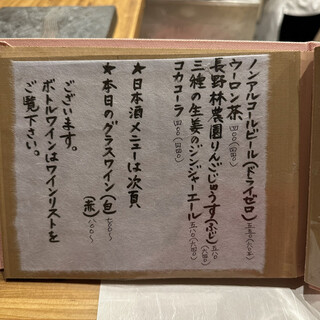 ノンアルコールビール（ドライゼロ）
ウーロン茶 四〇〇（四四〇）
長野林農園りんごじゅうす（ふじ）
三種の生姜のジンジャーエール
コカコーラ 四〇〇（四四〇）
★日本酒メニューは次頁
★本日のグラスワイン（白）七〇〇〜
（赤）八〇〇〜
ボトルワインはワインリストを
ございます。
ご覧下さい。